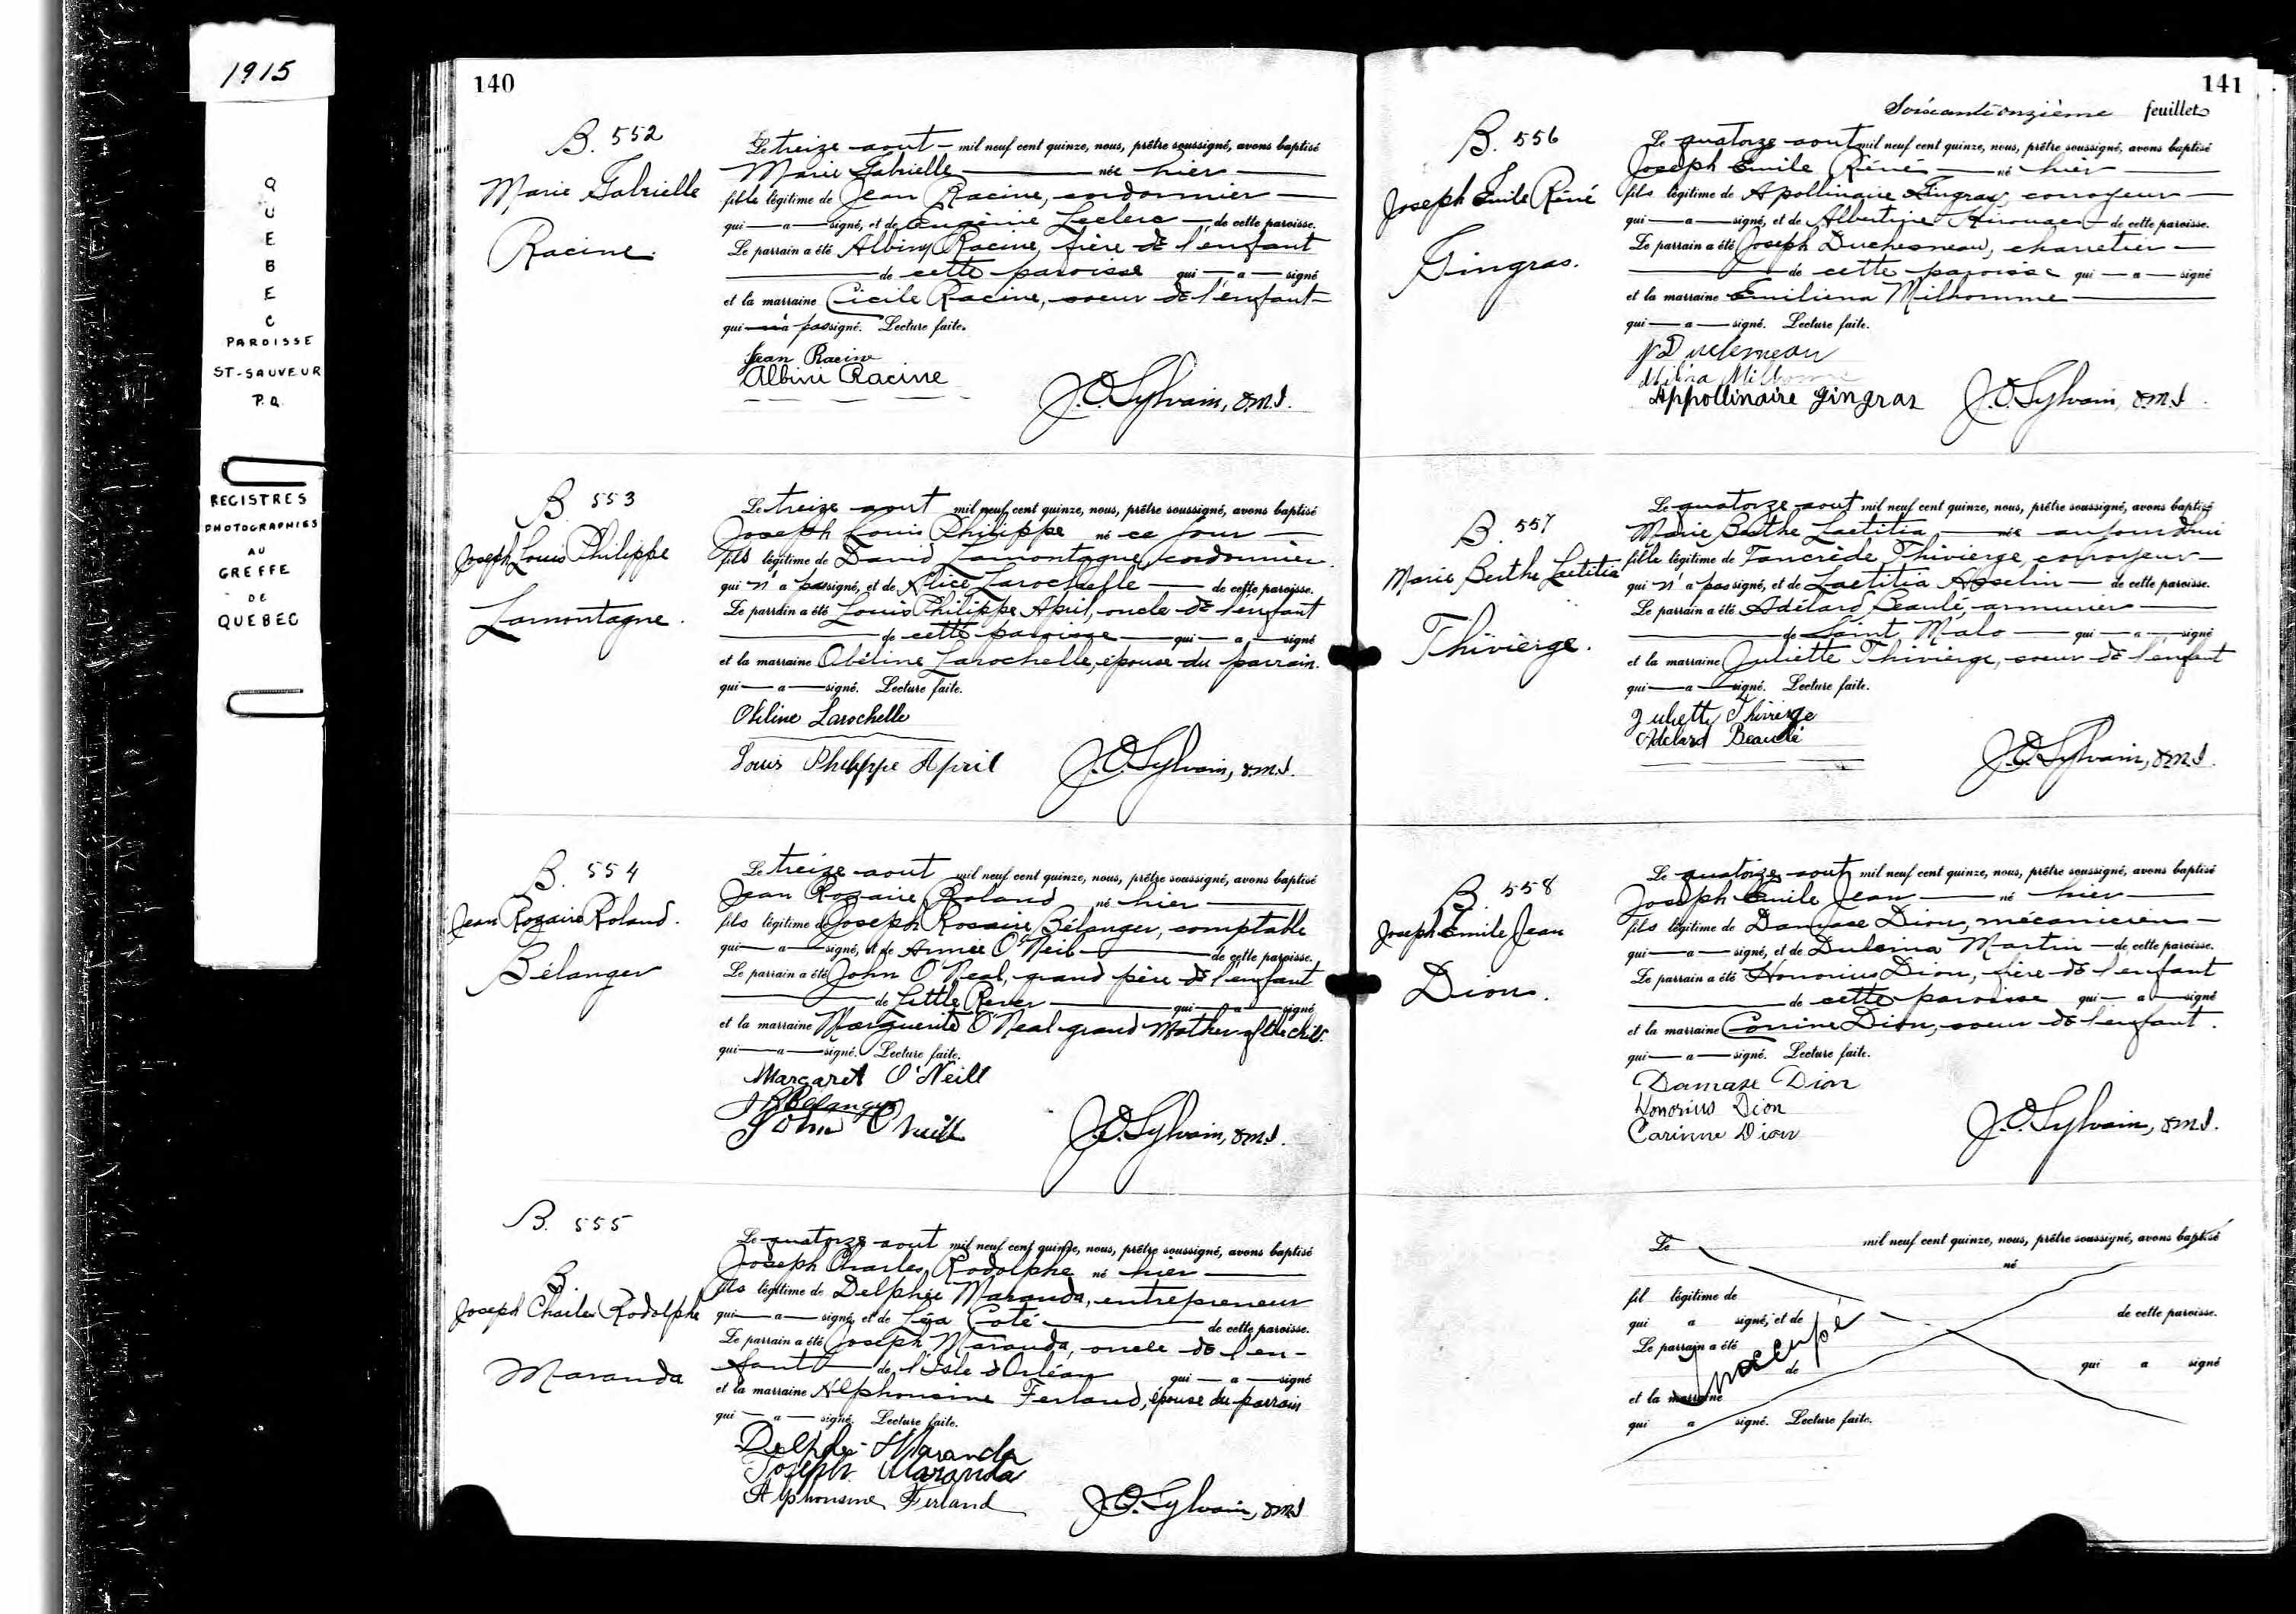 1915
QUEBEC
PAROISSE
ST-SAUVEUR
P.Q.
REGISTRES
PHOTOGRAPHIES
AU
GREFFE
DE
QUEBEC
140
B. 552
Marie Gabrielle
Racine.
Le treize aout mil neuf cent quinze, nous, prêtre soussigné, avons baptisé
Marie Gabrielle née hier
fille légitime de Jean Racine, cordonnier
qui a signé, et de Eugénie Leclerc de cette paroisse.
Le parrain a été Albini Racine, frère de l'enfant
de cette paroisse qui a signé
et la marraine Cécile Racine, soeur de l'enfant
qui n'a pas signé. Lecture faite.
Jean Racine
Albini Racine
J.O. Sylvain, o.m.i.
B. 553
Joseph Louis Philippe
Lamontagne.
Le treize aout mil neuf cent quinze, nous, prêtre soussigné, avons baptisé
Joseph Louis Philippe né ce jour
fils légitime de David Lamontagne, cordonnier.
qui n'a pas signé, et de Alice Larochelle de cette paroisse.
Le parrain a été Louis Philippe April, oncle de l'enfant
de cette paroisse qui a signé
et la marraine Obéline Larochelle, épouse du parrain.
qui a signé. Lecture faite.
Obéline Larochelle
Louis Philippe April
J.O. Sylvain, o.m.i.
B. 554
Jean Rozaire Roland.
Bélanger
Le treize aout mil neuf cent quinze, nous, prêtre soussigné, avons baptisé
Jean Rozaire Roland né hier
fils légitime de Joseph Rosaire Bélanger, comptable
qui a signé, et de Annie O'Neil de cette paroisse.
Le parrain a été John O'Neal, grand père de l'enfant
de Little River qui a signé
et la marraine Marguerite O'Neal grand Mother of the child.
qui a signé. Lecture faite.
Margaret O'Neill
J R Bélanger
John O'Neill
J.O. Sylvain, o.m.i.
B. 555
B.
Joseph Charles Rodolphe
Maranda
Le quatorze aout mil neuf cent quinze, nous, prêtre soussigné, avons baptisé
Joseph Charles Rodolphe né hier
fils légitime de Delphie Maranda, entrepreneur
qui a signé, et de Léa Coté de cette paroisse.
Le parrain a été Joseph Maranda, oncle de l'en-
fant de l'Isle d'Orléans qui a signé
et la marraine Alphonsine Ferland, épouse du parrain
qui a signé. Lecture faite.
Delphie Maranda
Joseph Maranda
Alphonsine Ferland
J.O. Sylvain, o.m.i.
141
Soixante onzième feuillet
B. 556
Joseph Emile Réné
Gingras.
Le quatorze aout mil neuf cent quinze, nous, prêtre soussigné, avons baptisé
Joseph Emile Réné né hier
fils légitime de Apollinaire Gingras, corroyeur
qui a signé, et de Albertine Kirouac de cette paroisse.
Le parrain a été Joseph Duchesneau, charretier
de cette paroisse qui a signé
et la marraine Emiliena Milhomme
qui a signé. Lecture faite.
J Duchesneau
Milhomme
Appollinaire Gingras
J.O. Sylvain, o.m.i.
B. 557
Marie Berthe Laetitia
Thivierge.
Le quatorze aout mil neuf cent quinze, nous, prêtre soussigné, avons baptisé
Marie Berthe Laetitia née aujourd'hui
fille légitime de Tancrède Thivierge, corroyeur
qui n'a pas signé, et de Laetitia Asselin de cette paroisse.
Le parrain a été Adélard Beaulé, armurier
de Saint Malo qui a signé
et la marraine Juliette Thivierge, soeur de l'enfant
qui a signé. Lecture faite.
Juliette Thivierge
Adelard Beaulé
J.O. Sylvain, o.m.i.
B. 558
Joseph Emile Jean
Dion.
Le quatorze aout mil neuf cent quinze, nous, prêtre soussigné, avons baptisé
Joseph Emile Jean né hier
fils légitime de Damase Dion, mécanicien
qui a signé, et de Dulema Martin de cette paroisse.
Le parrain a été Honorius Dion, frère de l'enfant
de cette paroisse qui a signé
et la marraine Corrine Dion, soeur de l'enfant.
qui a signé. Lecture faite.
Damase Dion
Honorius Dion
Carinne Dion
J.O. Sylvain, o.m.i.
Le mil neuf cent quinze, nous, prêtre soussigné, avons baptisé
né
fil légitime de
qui a signé, et de de cette paroisse.
Le parrain a été
de qui a signé
et la marraine
qui a signé. Lecture faite.
Inoccupé